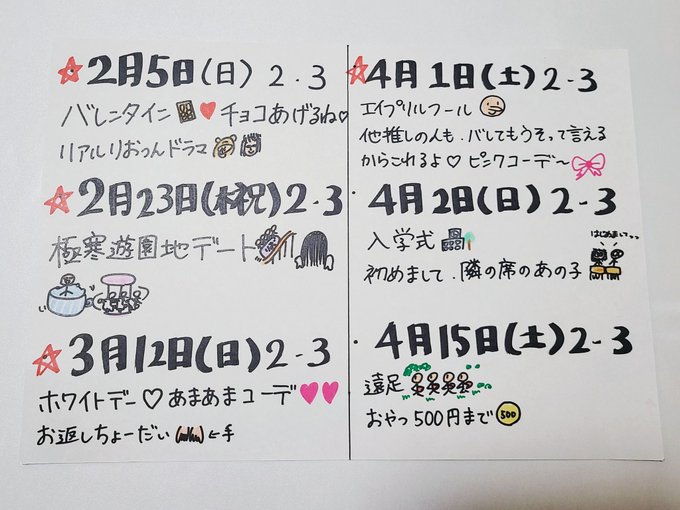 ☆2月5日(日) 2-3
バレンタイン ♥ チョコあげるね♡
リアルりおっんドラマ
☆2月23日(木祝) 2-3
極寒遊園地デート
☆3月12日(日) 2-3
ホワイトデー♡あまあまコーデ♥♥
お返しちょーだい ←手
☆4月1日(土) 2-3
エイプリルフール
他推しの人も、バレてもうそって言える
からこれるよ♡ ピンクコーデ〜
・4月2日(日) 2-3
入学式
はじめまして…
初めまして、隣の席のあの子
・4月15日(土) 2-3
遠足
おやつ500円まで 500